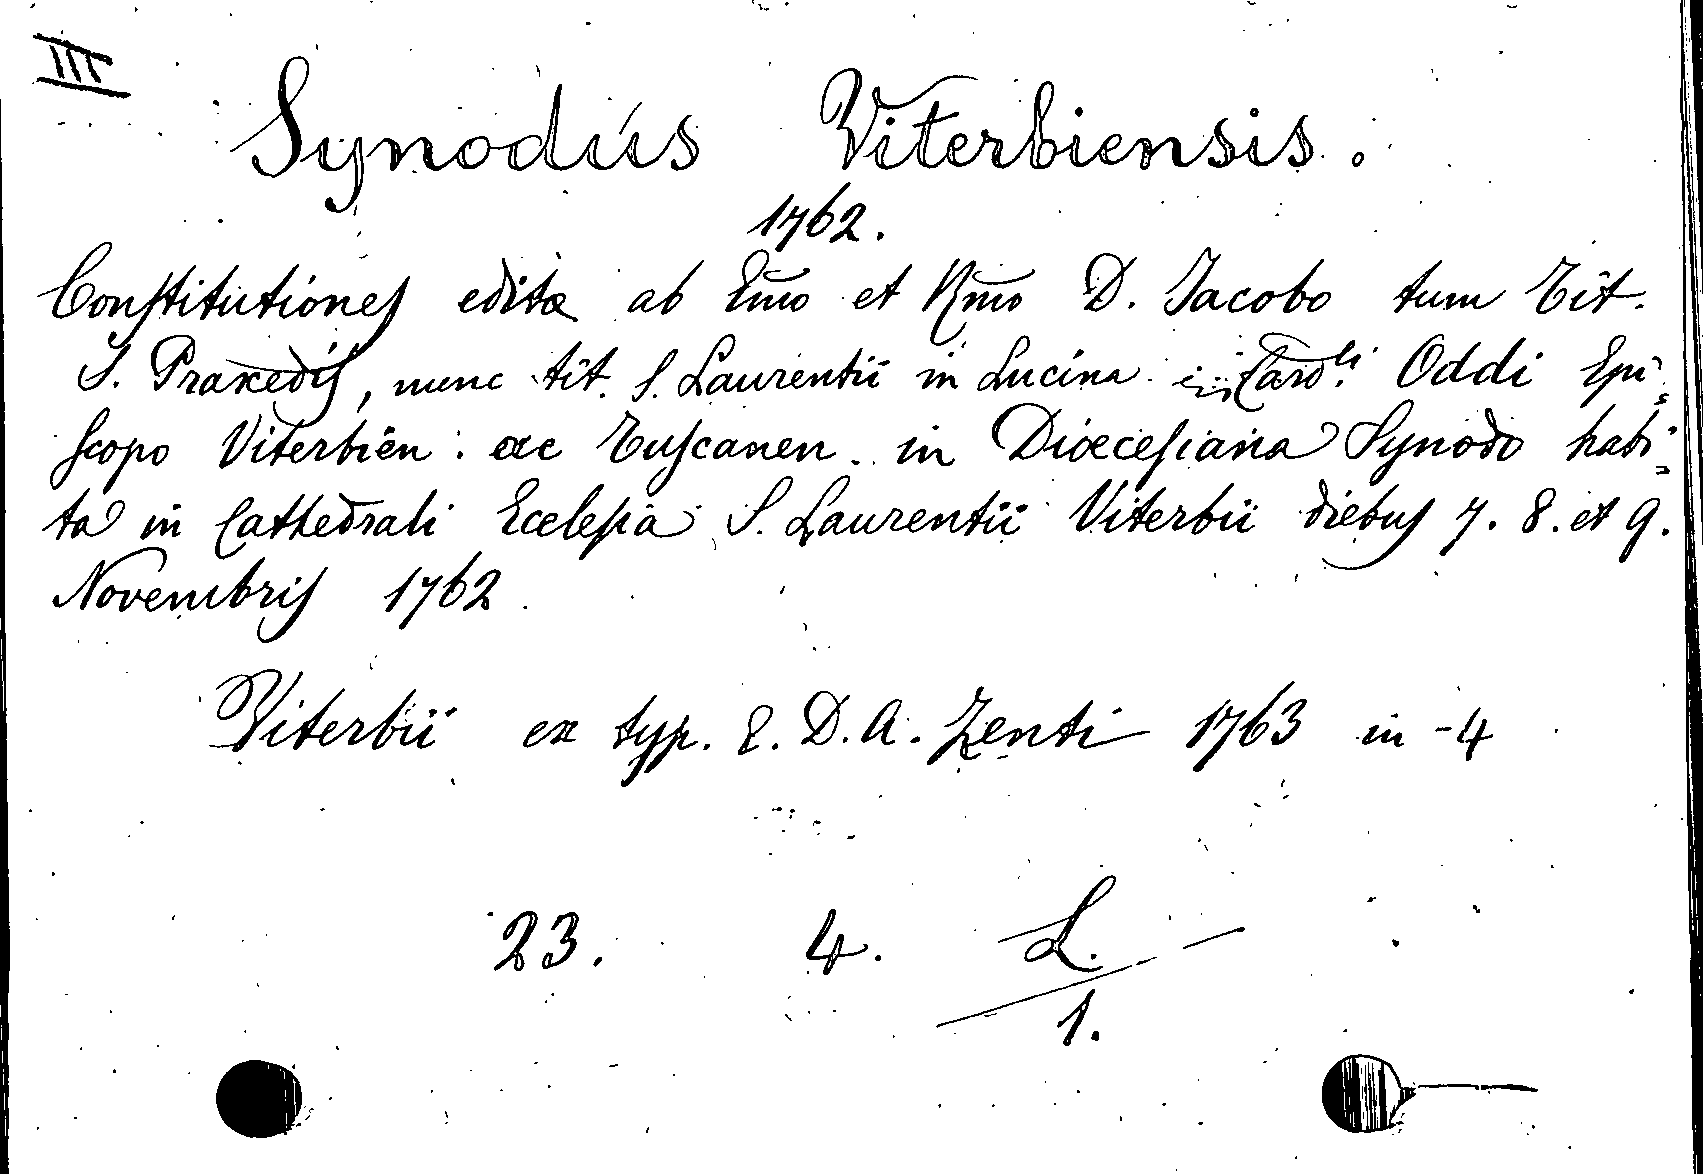 III
Synodus Viterbiensis.
1762.
Constitutiones editæ ab Emo et Rmo D. Jacobo tum Tit.
S. Praxedis, nunc tit. S. Laurentii in Lucina Cardli Oddi Epi=
scopo Viterbien: ac Tuscanen. in Diœcesiana Synodo habi=
ta in Cathedrali Ecclesia S. Laurentii Viterbii diebus 7. 8. et 9.
Novembris 1762
Viterbii ex typ. D. A. Zenti 1763 in-4
23. 4. L.
1.